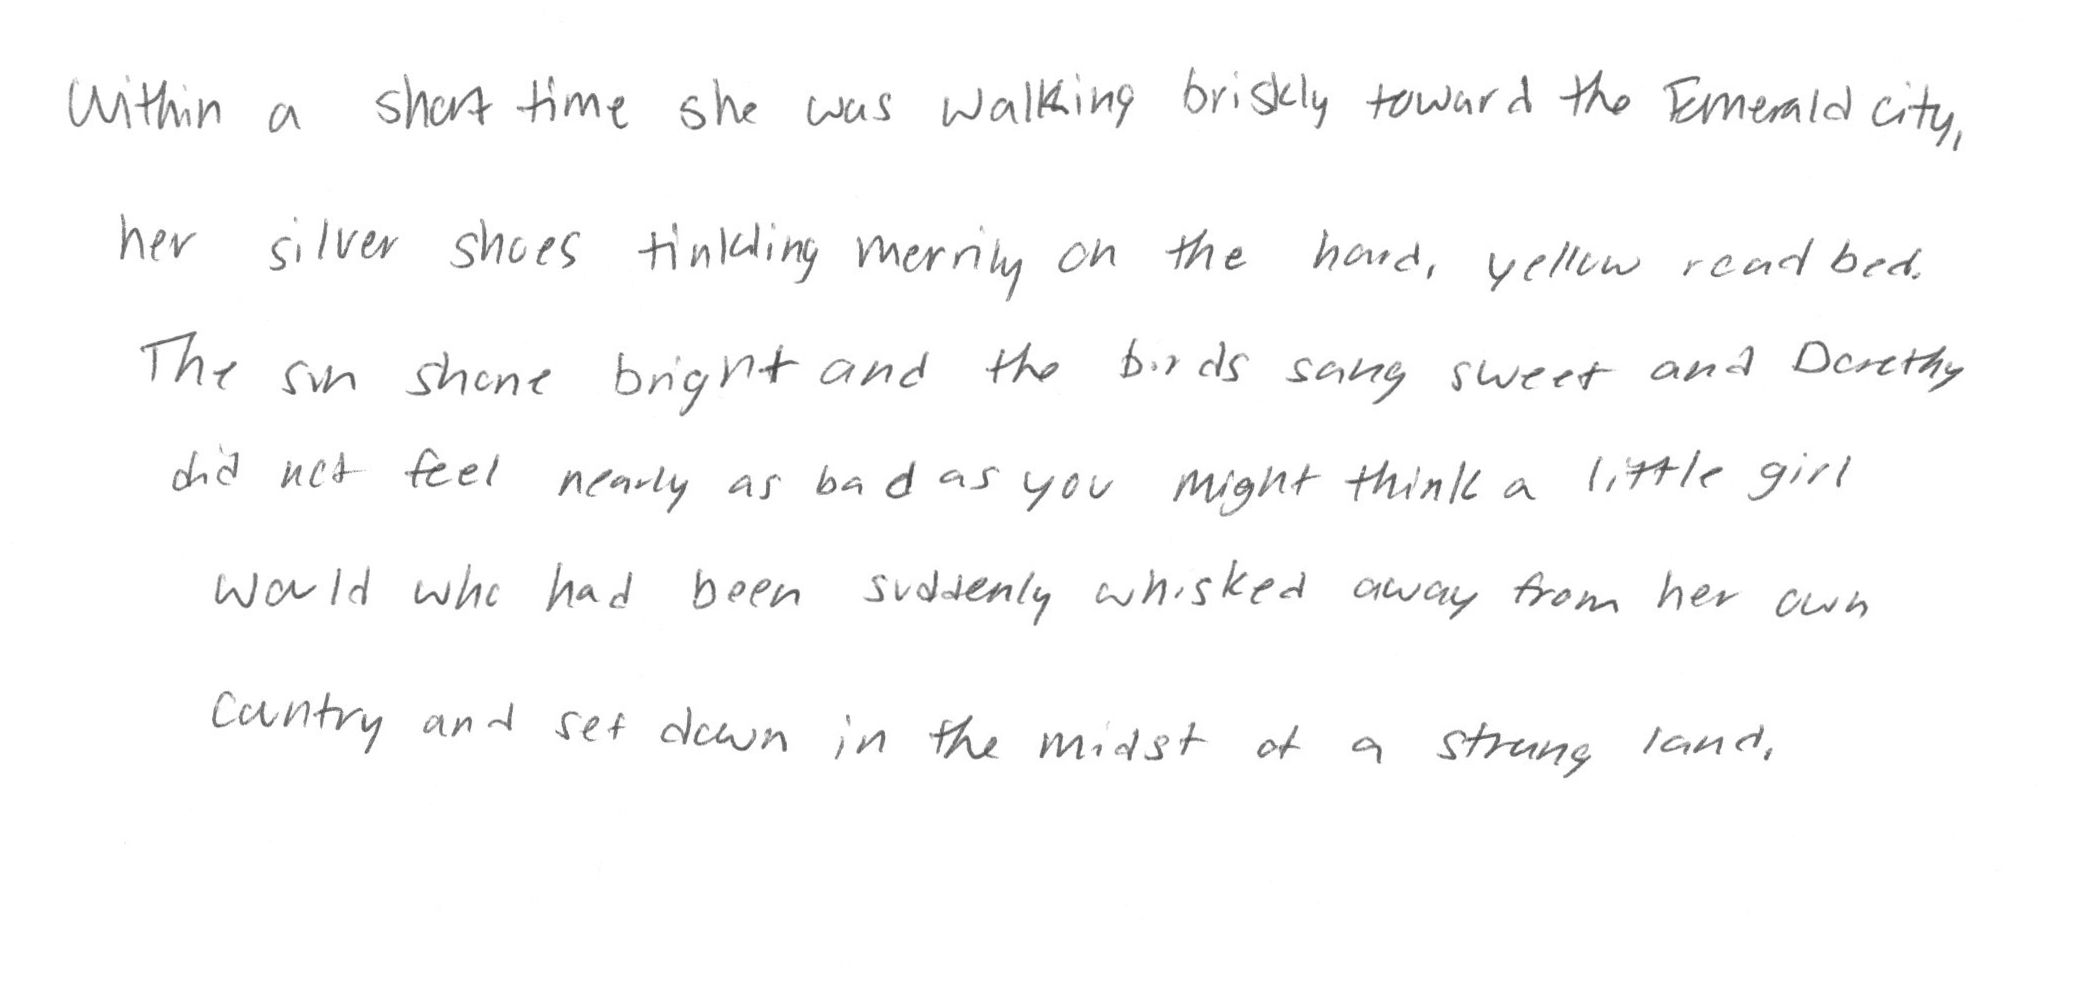 Within a short time she was walking briskly toward the Emerald city,
her silver shoes tinkling merrily on the hard, yellow road bed.
The sun shone bright and the birds sang sweet and Dorothy
did not feel nearly as bad as you might think a little girl
would who had been suddenly whisked away from her own
country and set down in the midst of a strang land.